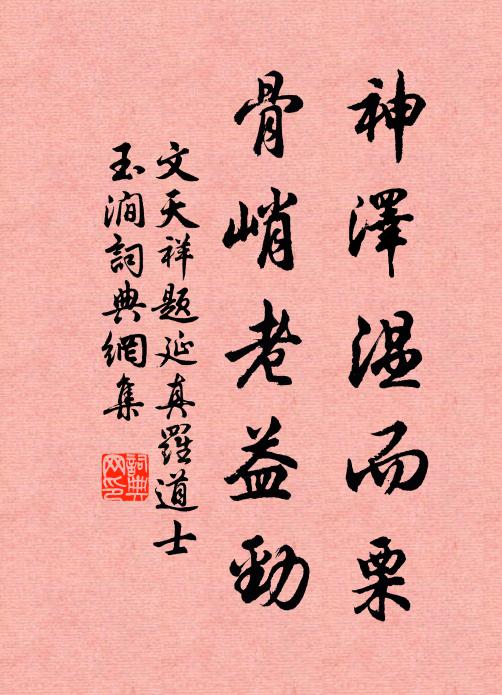 神澤温而栗
骨峭老益勁
文天祥題延真羅道士
玉澗詞典網集
詞典网印